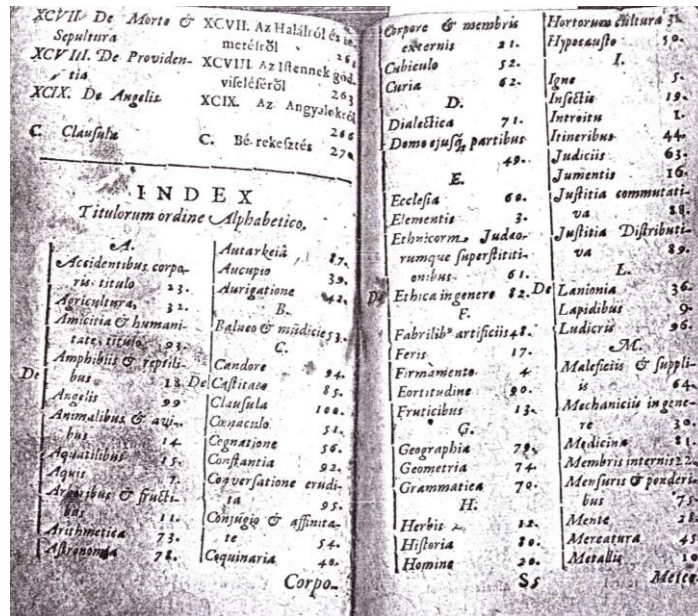 XCVII. De Morte &
Sepultura
XCVIII. De Providen-
tia
XCIX. De Angelis
C. Clausula
XCVII. Az Halálról és te-
metésről 261
XCVIII. Az Istennek gond-
viseléséről 263
XCIX. Az Angyalokról
266
C. Bé-rekesztés 270
INDEX
Titulorum ordine Alphabetico.
A.
Accidentibus corpo-
ris titulo 23.
Agricultura 32.
Amicitia & humani-
tate, titulo 93.
Amphibiis & reptili-
De bus 18
Angelis 99
Animalibus & avi-
bus 14
Aquatilibus 15.
Aquis 7.
Arboribus & fructi-
bus 11.
Arithmetica 73.
Astronomia 78.
Autarkeiâ 87.
Aucupio 39.
Aurigatione 42.
B.
Balneo & mūdicie 53.
C.
Candore 94.
De Castitate 85.
Clausula 100.
Cœnaculo 51.
Cognatione 56.
Constantia 92.
Coversatione erudi-
ta 95.
Conjugio & affinita-
te 54.
Coquinaria 40.
Corpo-
Corpore & membris
externis 21.
Cubiculo 52.
Curia 62.
D.
Dialectica 71.
Domo ejusq; partibus
49.
E.
Ecclesia 60.
Elementis 3.
Ethnicorm, Judeo-
rumque superstiti-
onibus 61.
De Ethica in genere 82.
F.
Fabrilib° artificiis 48.
Feris 17.
Firmamento 4
Fortitudine 90.
Fruticibus 13.
G.
Geographia 79.
Geometria 74.
Grammatica 70.
H.
Herbis 12.
Historia 80.
Homine 20.
Ss
Hortorum cultura 31.
Hypocausto 50.
I.
Igne 5.
Insectis 19.
Introitu 1.
Itineribus 44.
Judiciis 63.
Jumentis 16.
Justitia commutati-
va 88.
Justitia Distributi-
va 89.
L.
De Lanionia 36.
Lapidibus 9.
Ludicris 96.
M.
Maleficiis & suppli-
is 64
Mechanicis in gene-
re 30.
Medicina 81
Membris internis 22.
Mensuris & ponderi-
bus 7
Mente 2
Mercatura 45
Metallis 10